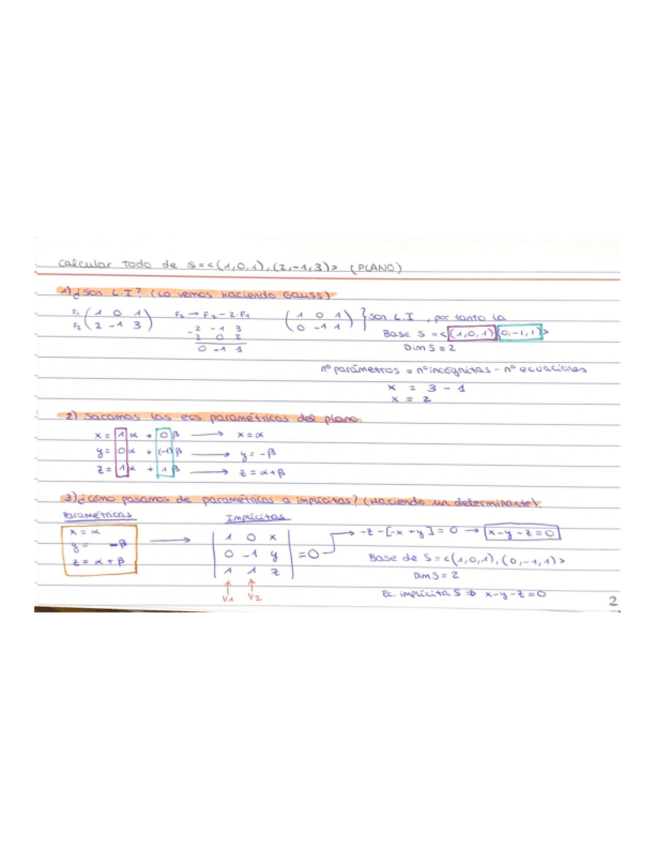 Calcular Todo de S=<(1,0,1),(2,-1,3)> (PLANO)
1) ¿Son L.I? (Lo vemos haciendo Gauss)
F₁ ( 1 0 1 ) F₂ → F₂ - 2·F₁ ( 1 0 1 ) } son L.I, por tanto la
F₂ ( 2 -1 3 ) -2 -1 3 ( 0 -1 1 ) Base S = <(1,0,1)(0,-1,1)>
2 0 2 Dim S = 2
0 -1 1
nº parámetros = nº incógnitas - nº ecuaciones
x = 3 - 1
x = 2
2) Sacamos las ecs paramétricas del plano.
x = 1α + 0β → x = α
y = 0α + (-1)β → y = -β
z = 1α + 1β → z = α+β
3) ¿Cómo pasamos de paramétricas a implícitas? (Haciendo un determinante).
Paramétricas Implícitas
x = α | 1 0 x | → -z-[-x+y] = 0 → x-y-z=0
y = -β → | 0 -1 y | = 0
z = α + β | 1 1 z | Base de S = <(1,0,1),(0,-1,1)>
Dim S = 2
V1 V2 Ec. implícita S ⇒ x-y-z=0
2